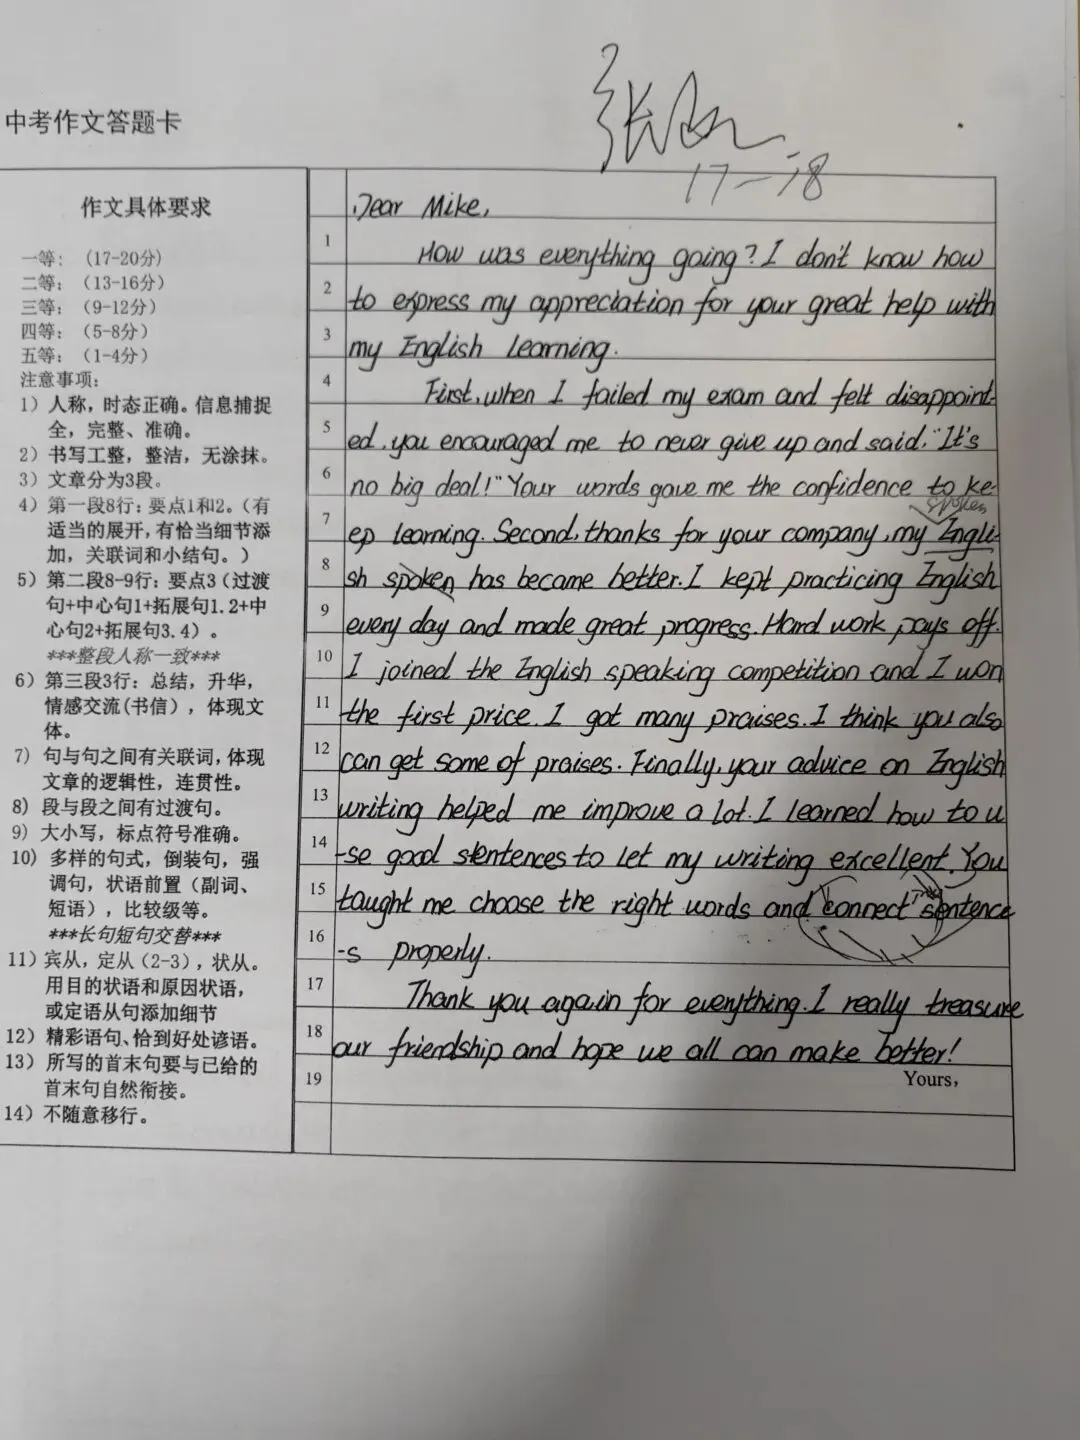 中考作文答题卡
17-18
作文具体要求
一等：（17-20分）
二等：（13-16分）
三等：（9-12分）
四等：（5-8分）
五等：（1-4分）
注意事项：
1）人称，时态正确。信息捕捉
全，完整、准确。
2）书写工整，整洁，无涂抹。
3）文章分为3段。
4）第一段8行：要点1和2。（有
适当的展开，有恰当细节添
加，关联词和小结句。）
5）第二段8-9行：要点3（过渡
句+中心句1+拓展句1.2+中
心句2+拓展句3.4）。
***整段人称一致***
6）第三段3行：总结，升华，
情感交流(书信），体现文
体。
7）句与句之间有关联词，体现
文章的逻辑性，连贯性。
8）段与段之间有过渡句。
9）大小写，标点符号准确。
10）多样的句式，倒装句，强
调句，状语前置（副词、
短语），比较级等。
***长句短句交替***
11）宾从，定从（2-3），状从。
用目的状语和原因状语，
或定语从句添加细节
12）精彩语句、恰到好处谚语。
13）所写的首末句要与已给的
首末句自然衔接。
14）不随意移行。
Dear Mike,
1 How was everything going? I don't know how
2 to express my appreciation for your great help with
3 my English learning.
4 First, when I failed my exam and felt disappoint-
5 ed, you encouraged me to never give up and said, "It's
6 no big deal!" Your words gave me the confidence to ke-
spoken
7 ep learning. Second, thanks for your company, my Engli-
8 sh spoken has became better. I kept practicing English
9 every day and made great progress. Hard work pays off.
10 I joined the English speaking competition and I won
11 the first price. I got many praises. I think you also
12 can get some of praises. Finally, your advice on English
13 writing helped me improve a lot. I learned how to u
14 -se good sentences to let my writing excellent. You
15 taught me choose the right words and connect sentence
16 -s properly.
17 Thank you again for everything. I really treasure
18 our friendship and hope we all can make better!
Yours,
19